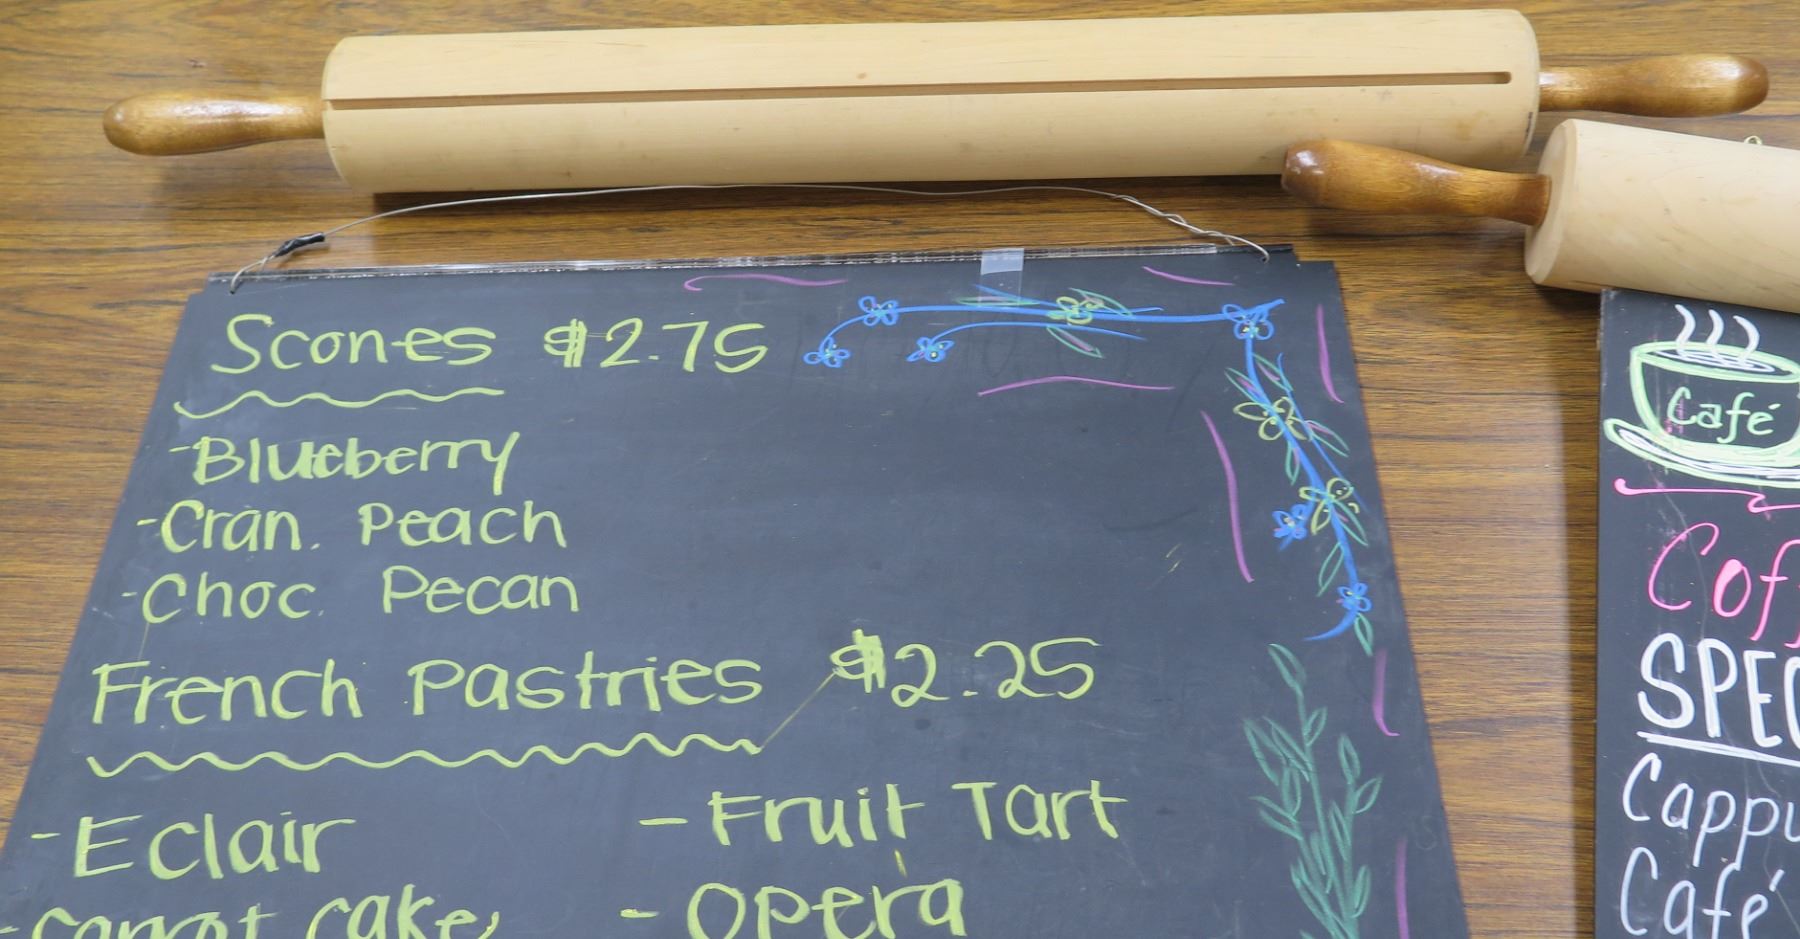 Scones $2.75
-Blueberry
-Cran. Peach
-Choc. Pecan
French Pastries $2.25
-Eclair
-Fruit Tart
-Carrot Cake
-Opera
Café
SPEC
Cappu
Café